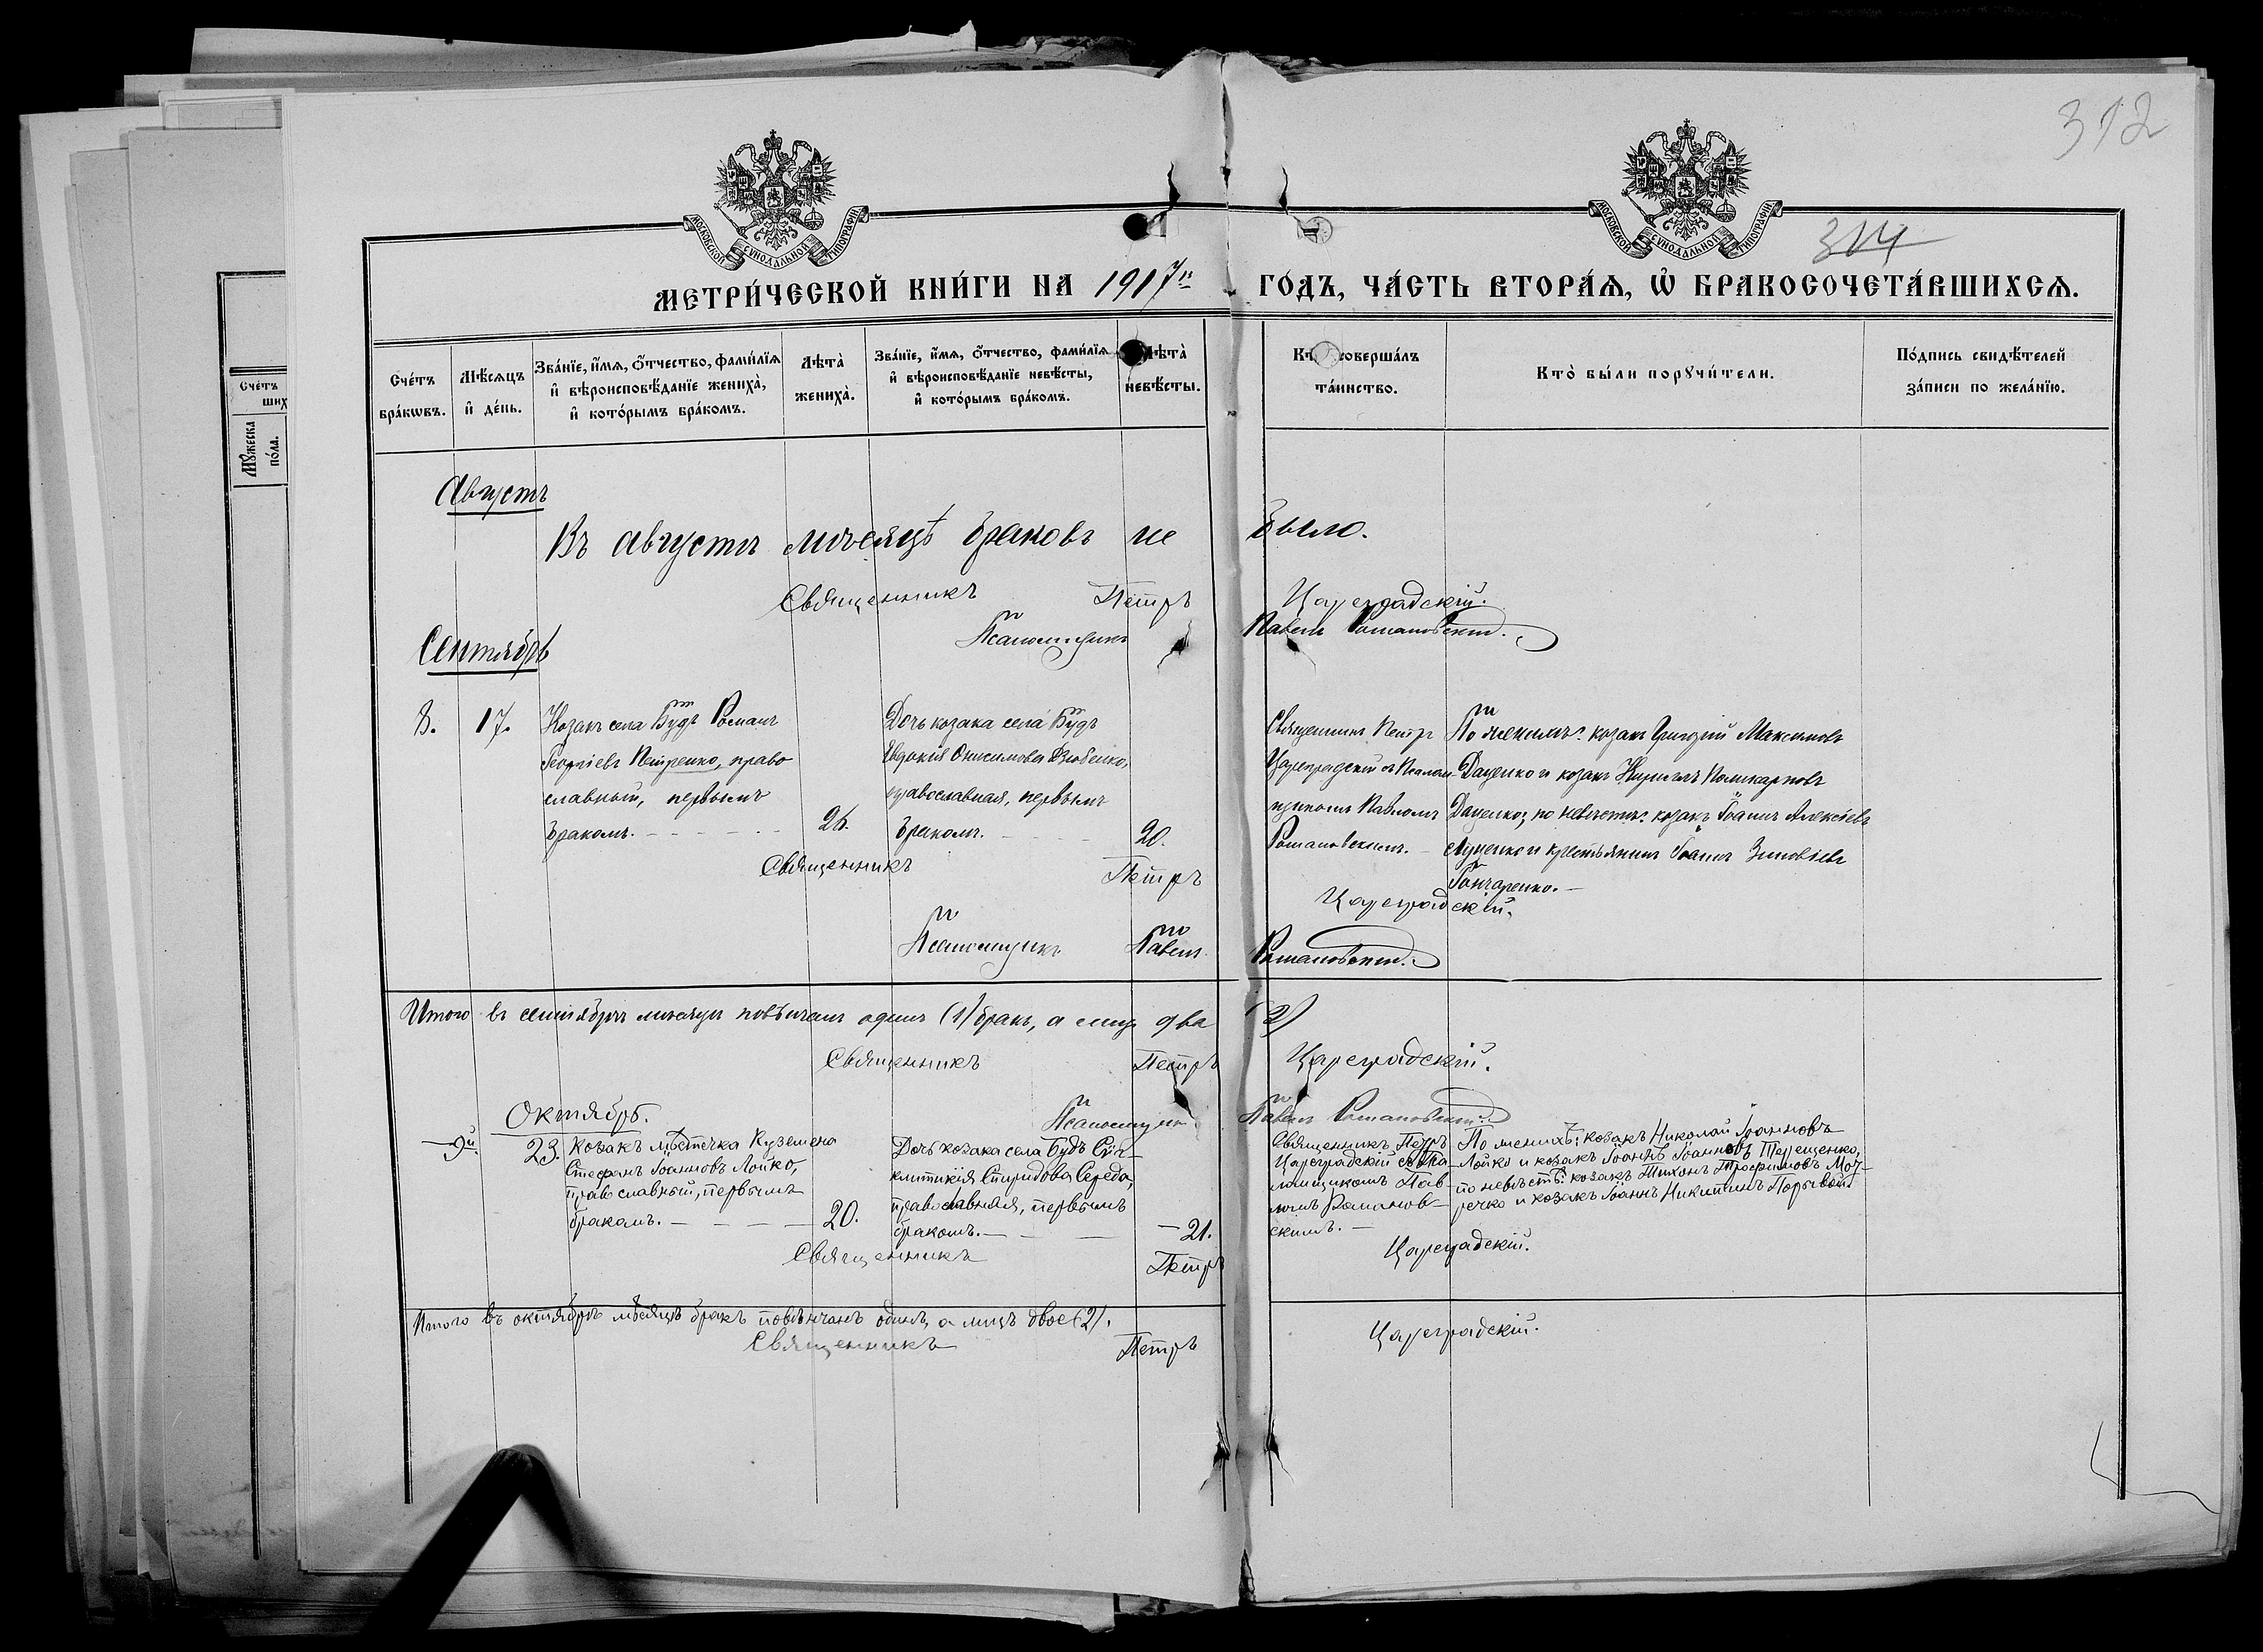 312
МОСКОВСКОЙ СѴНОДАЛЬНОЙ ТИПОГРАФІИ.
МОСКОВСКОЙ СѴНОДАЛЬНОЙ ТИПОГРАФІИ.
314
МЕТРИ́ЧЕСКОЙ КНИ́ГИ НА 1917й ГО́ДЪ, ЧА́СТЬ ВТОРА́Ѧ, Ѡ҆ БРАКОСОЧЕТА́ВШИХСѦ.
Сче́тъ
ших
Мꙋ́жеска
по́ла.
Сче́тъ
бра́кѡвъ.
Мѣ́сѧцъ
и҆ де́нь.
Зва́нїе, и҆́мѧ, ѻ҆́тчество, фами́лїѧ
и҆ вѣроисповѣ́данїе жениха̀,
и҆ кото́рымъ бра́комъ.
Лѣта̀
жениха̀.
Зва́нїе, и҆́мѧ, ѻ҆́тчество, фами́лїѧ
и҆ вѣроисповѣ́данїе невѣ́сты,
и҆ кото́рымъ бра́комъ.
Лѣта̀
невѣ́сты.
Кто̀ соверша́лъ
та́инство.
Кто̀ бы́ли порꙋчи́тели.
По́дпись свидѣ́телей
за́писи по жела́нїю.
Августъ
Въ августѣ мѣсяцѣ браковъ не было.
Священникъ Петръ Цареградскій.
Псаломщикъ Павелъ Романовскій.
Сентябрь
8.
17.
Козакъ села Будъ Романъ
Георгіевъ Петренко, право
славный, первымъ
бракомъ.
26.
Дочь козака села Будъ
Евдокія Онисимова Дзюбенко,
православная, первымъ
бракомъ.
20.
Священникъ Петръ
Цареградскій съ Псалом-
щикомъ Павломъ
Романовскимъ.
По женихѣ: козакъ Григорій Максимовъ
Даценко и козакъ Кириллъ Поликарповъ
Даценко; по невѣстѣ: козакъ Іоаннъ Алексіевъ
Луценко и крестьянинъ Іоаннъ Зиновіевъ
Гончаренко.
Священникъ Петръ Цареградскій.
Псаломщикъ Павелъ Романовскій.
Итого въ сентябрѣ мѣсяцѣ повѣнчанъ одинъ (1) бракъ, а лицъ два (2)
Священникъ Петръ Цареградскій.
Псаломщикъ Павелъ Романовскій.
Октябрь.
9й.
23.
Козакъ мѣстечка Куземена
Стефанъ Іоанновъ Лойко,
православный, первымъ
бракомъ.
20.
Дочь козака села Будъ Син-
клитикія Спиридова Середа,
православная, первымъ
бракомъ.
21.
Священникъ Петръ
Цареградскій съ Пса-
ломщикомъ Пав-
ломъ Романов-
скимъ.
По женихѣ: козакъ Николай Іоанновъ
Лойко и козакъ Іоаннъ Іоанновъ Терещенко,
по невѣстѣ: козакъ Тихонъ Трофимовъ Мо-
речко и козакъ Іоаннъ Никитинъ
Священникъ Петръ Цареградскій.
Итого въ октябрѣ мѣсяцѣ бракъ повѣнчанъ одинъ, а лицъ двое (2).
Священникъ Петръ Цареградскій.